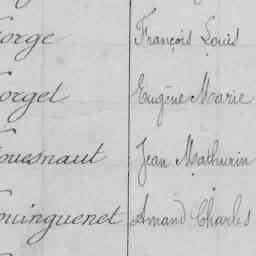 orge François Louis
orget Eugène Marie
ouesnaut Jean Mathurin
ouinguenet Amand Charles